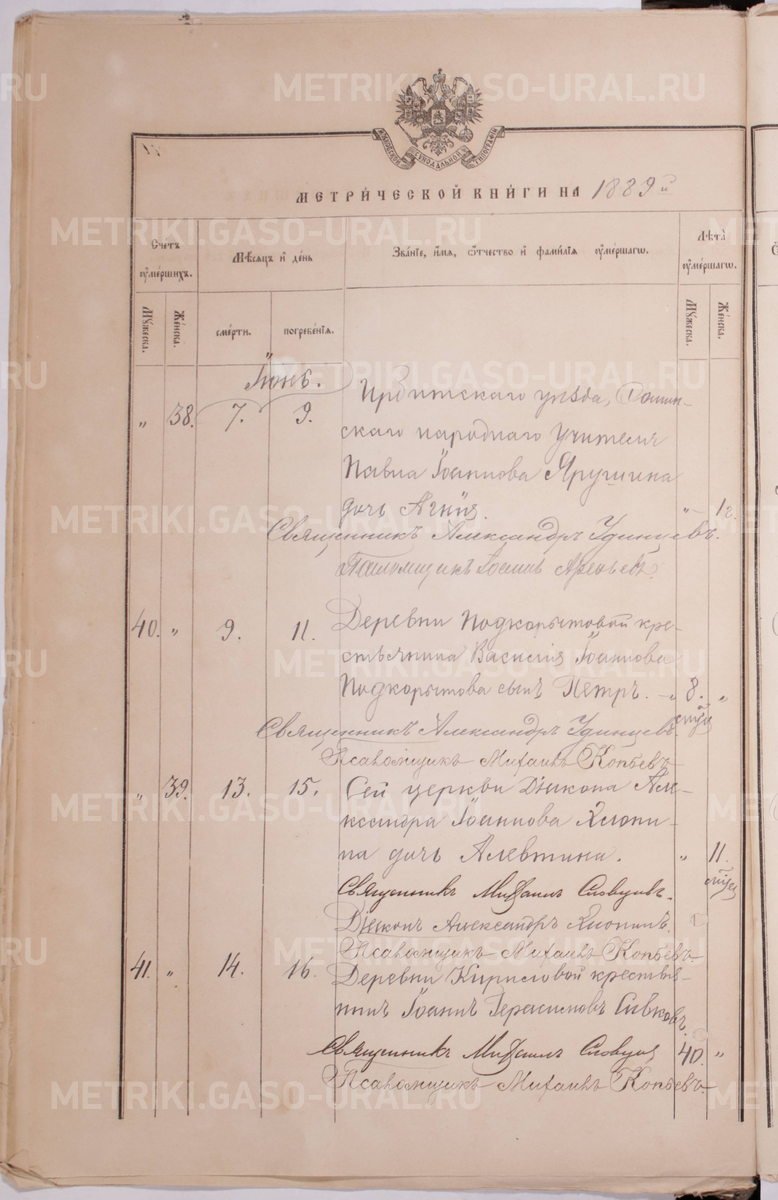 МЕТРИ́ЧЕСКОЙ КНИ́ГИ НА 1889 й
Счетъ оуме́ршихъ.
Мѣ́сяцъ и день
Зва́ніе, и́мя, ѻ҆́тчество и фами́лія оуме́ршагѡ.
Лѣта̀ оуме́ршагѡ.
Му́жеска. Же́нска.
сме́рти. погребе́нія.
Му́жеска. Же́нска.
Іюнь.
„ 38. 7. 9. Ирбитскаго уѣзда,
скаго народнаго учителя
Павла Іоаннова Ярушина
дочь Агнія. „ 12.
Священникъ Александръ Удинцевъ.
Псаломщикъ Іоаннъ Арефьевъ.
40. „ 9. 11. Деревни Подкорытовой кре-
стьянина Василія Іоаннова
Подкорытова сынъ Петръ. „ 8. „
Священникъ Александръ Удинцевъ
Псаломщикъ Михаилъ Копьевъ
„ 39. 13. 15. Сей церкви Діакона Але-
ксандра Іоаннова Хлопи-
на дочь Алевтина. „ 11.
Священникъ Михаилъ Словцовъ.
Діаконъ Александръ Хлопинъ.
Псаломщикъ Михаилъ Копьевъ
41. „ 14. 16. Деревни Кириловой крестья-
нинъ Іоаннъ Герасимовъ Сивковъ.
Священникъ Михаилъ Словцовъ 40. „
Псаломщикъ Михаилъ Копьевъ.
METRIKI.GASO-URAL.RU